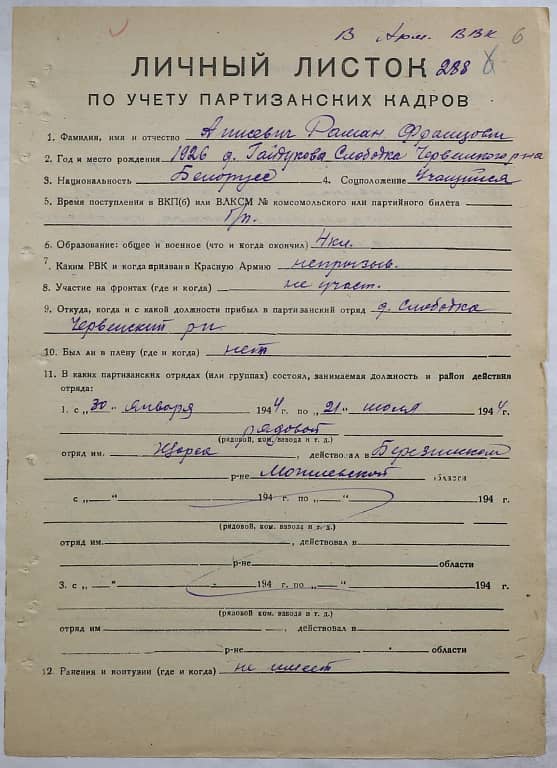 В Арм. ВВК 6
ЛИЧНЫЙ ЛИСТОК 288
ПО УЧЕТУ ПАРТИЗАНСКИХ КАДРОВ
1. Фамилия, имя и отчество Аписевич Раман Францович
2. Год и место рождения 1926 д. Гайдукова Слободка Червенского р-на
3. Национальность Белорусс 4. Соцположение Учащийся
5. Время поступления в ВКП(б) или ВЛКСМ № комсомольского или партийного билета
б/п.
6. Образование: общее и военное (что и когда окончил) 4 кл.
7. Каким РВК и когда призван в Красную Армию непризыв.
8. Участие на фронтах (где и когда) не участ.
9. Откуда, когда и с какой должности прибыл в партизанский отряд д. Слободка
Червенский р-н
10. Был ли в плену (где и когда) нет
11. В каких партизанских отрядах (или группах) состоял, занимаемая должность и район действия
отряда:
1. с „30" января 1944 г. по „21" июля 1944 г.
рядовой
(рядовой, ком. взвода и т. д.)
отряд им. Щорса, действовал в Березинском
р-не Могилевской области
с „ — " 194 г. по „ — " 194 г.
(рядовой, ком. взвода и т. д.)
отряд им. , действовал в
р-не области
3. с „ — " - 194 г. по „ — " 194 г.
(рядовой, ком. взвода и т. д.)
отряд им , действовал в
р-не области
12. Ранения и контузии (где и когда) не имеет